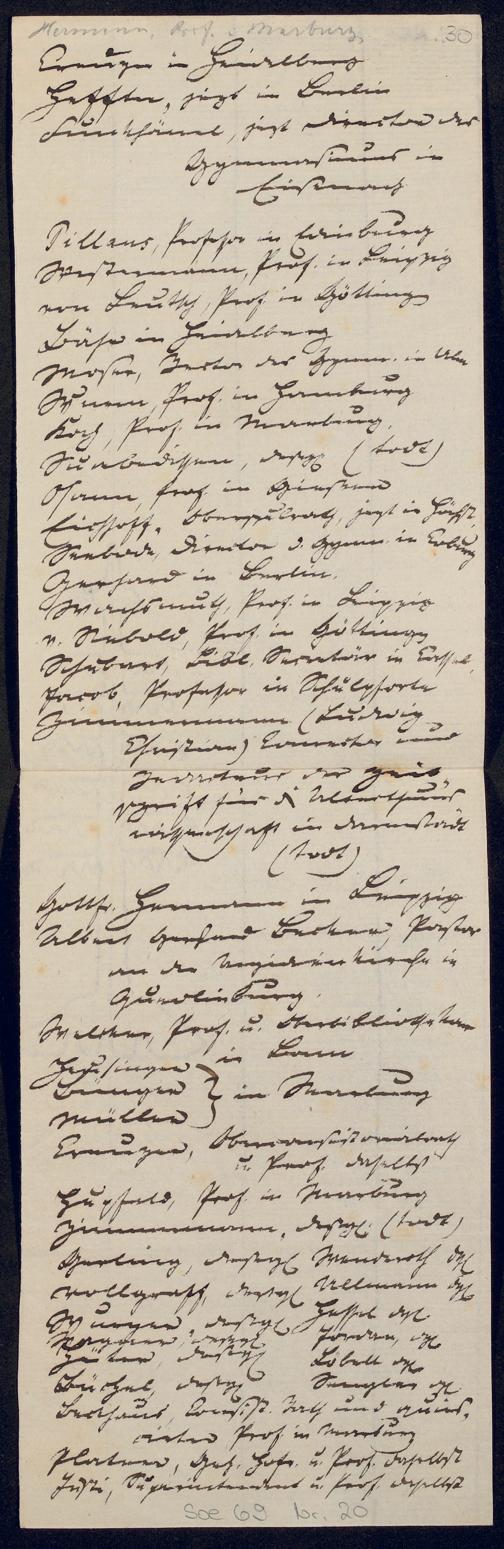 Hermann, Prof. in Marburg. 30
Creuzer in Heidelberg
Heffter, jetzt in Berlin
Funkhänel, jetzt Director des
Gymnasiums in
Eisenach
Pillans, Professor in Edinburg
Westermann, Prof. in Leipzig
von Leutsch, Prof. in Göttingen
Bähr in Heidelberg
Moser, Rector des Gymn. in Ulm
Wurm, Prof. in Hamburg
Koch, Prof. in Marburg.
Suabedissen, desgl. (todt)
Osann, Prof. in Giessen
Eichhoff, Oberschulrath, jetzt in
Seebode, Director d. Gymn. in Coburg
Gerhard in Berlin.
Wachsmuth, Prof. in Leipzig
v. Siebold, Prof. in Göttingen
Schubart, Bibl. Secretär in Cassel,
Jacob, Professor in Schulpforte
Zimmermann (Ludwig
Christian) Conrector und
Redacteur der Zeit
schrift für d. Alterthums
wissenschaft in Darmstadt
(todt)
Gottfr. Hermann in Leipzig
Albert Gerhard Becker, Pastor
an der Aegidienkirche in
Quedlinburg.
Welcker, Prof. u. Oberbibliothekar
in Bonn
Heusinger
Bünger } in Marburg
Müller
Creuzer, Oberconsistorialrath
u. Prof. daselbst
Hupfeld, Prof. in Marburg
Zimmermann, desgl. (todt)
Gerling, desgl. Wenderoth dgl
Vollgraff, desgl. Ullmann dgl
Wurzer, desgl. Hessel dgl
Wagner, desgl. Jordan, dgl
Hüter desgl. Löbell dgl
Büchel, desgl. Sengler dgl
Beckhaus, Consist. Rath und quies-
cirter Prof. in Marburg
Platner, Geh. Hofr. u. Prof. daselbst
Justi, Superintendent u. Prof. daselbst
Soc 69 br. 20